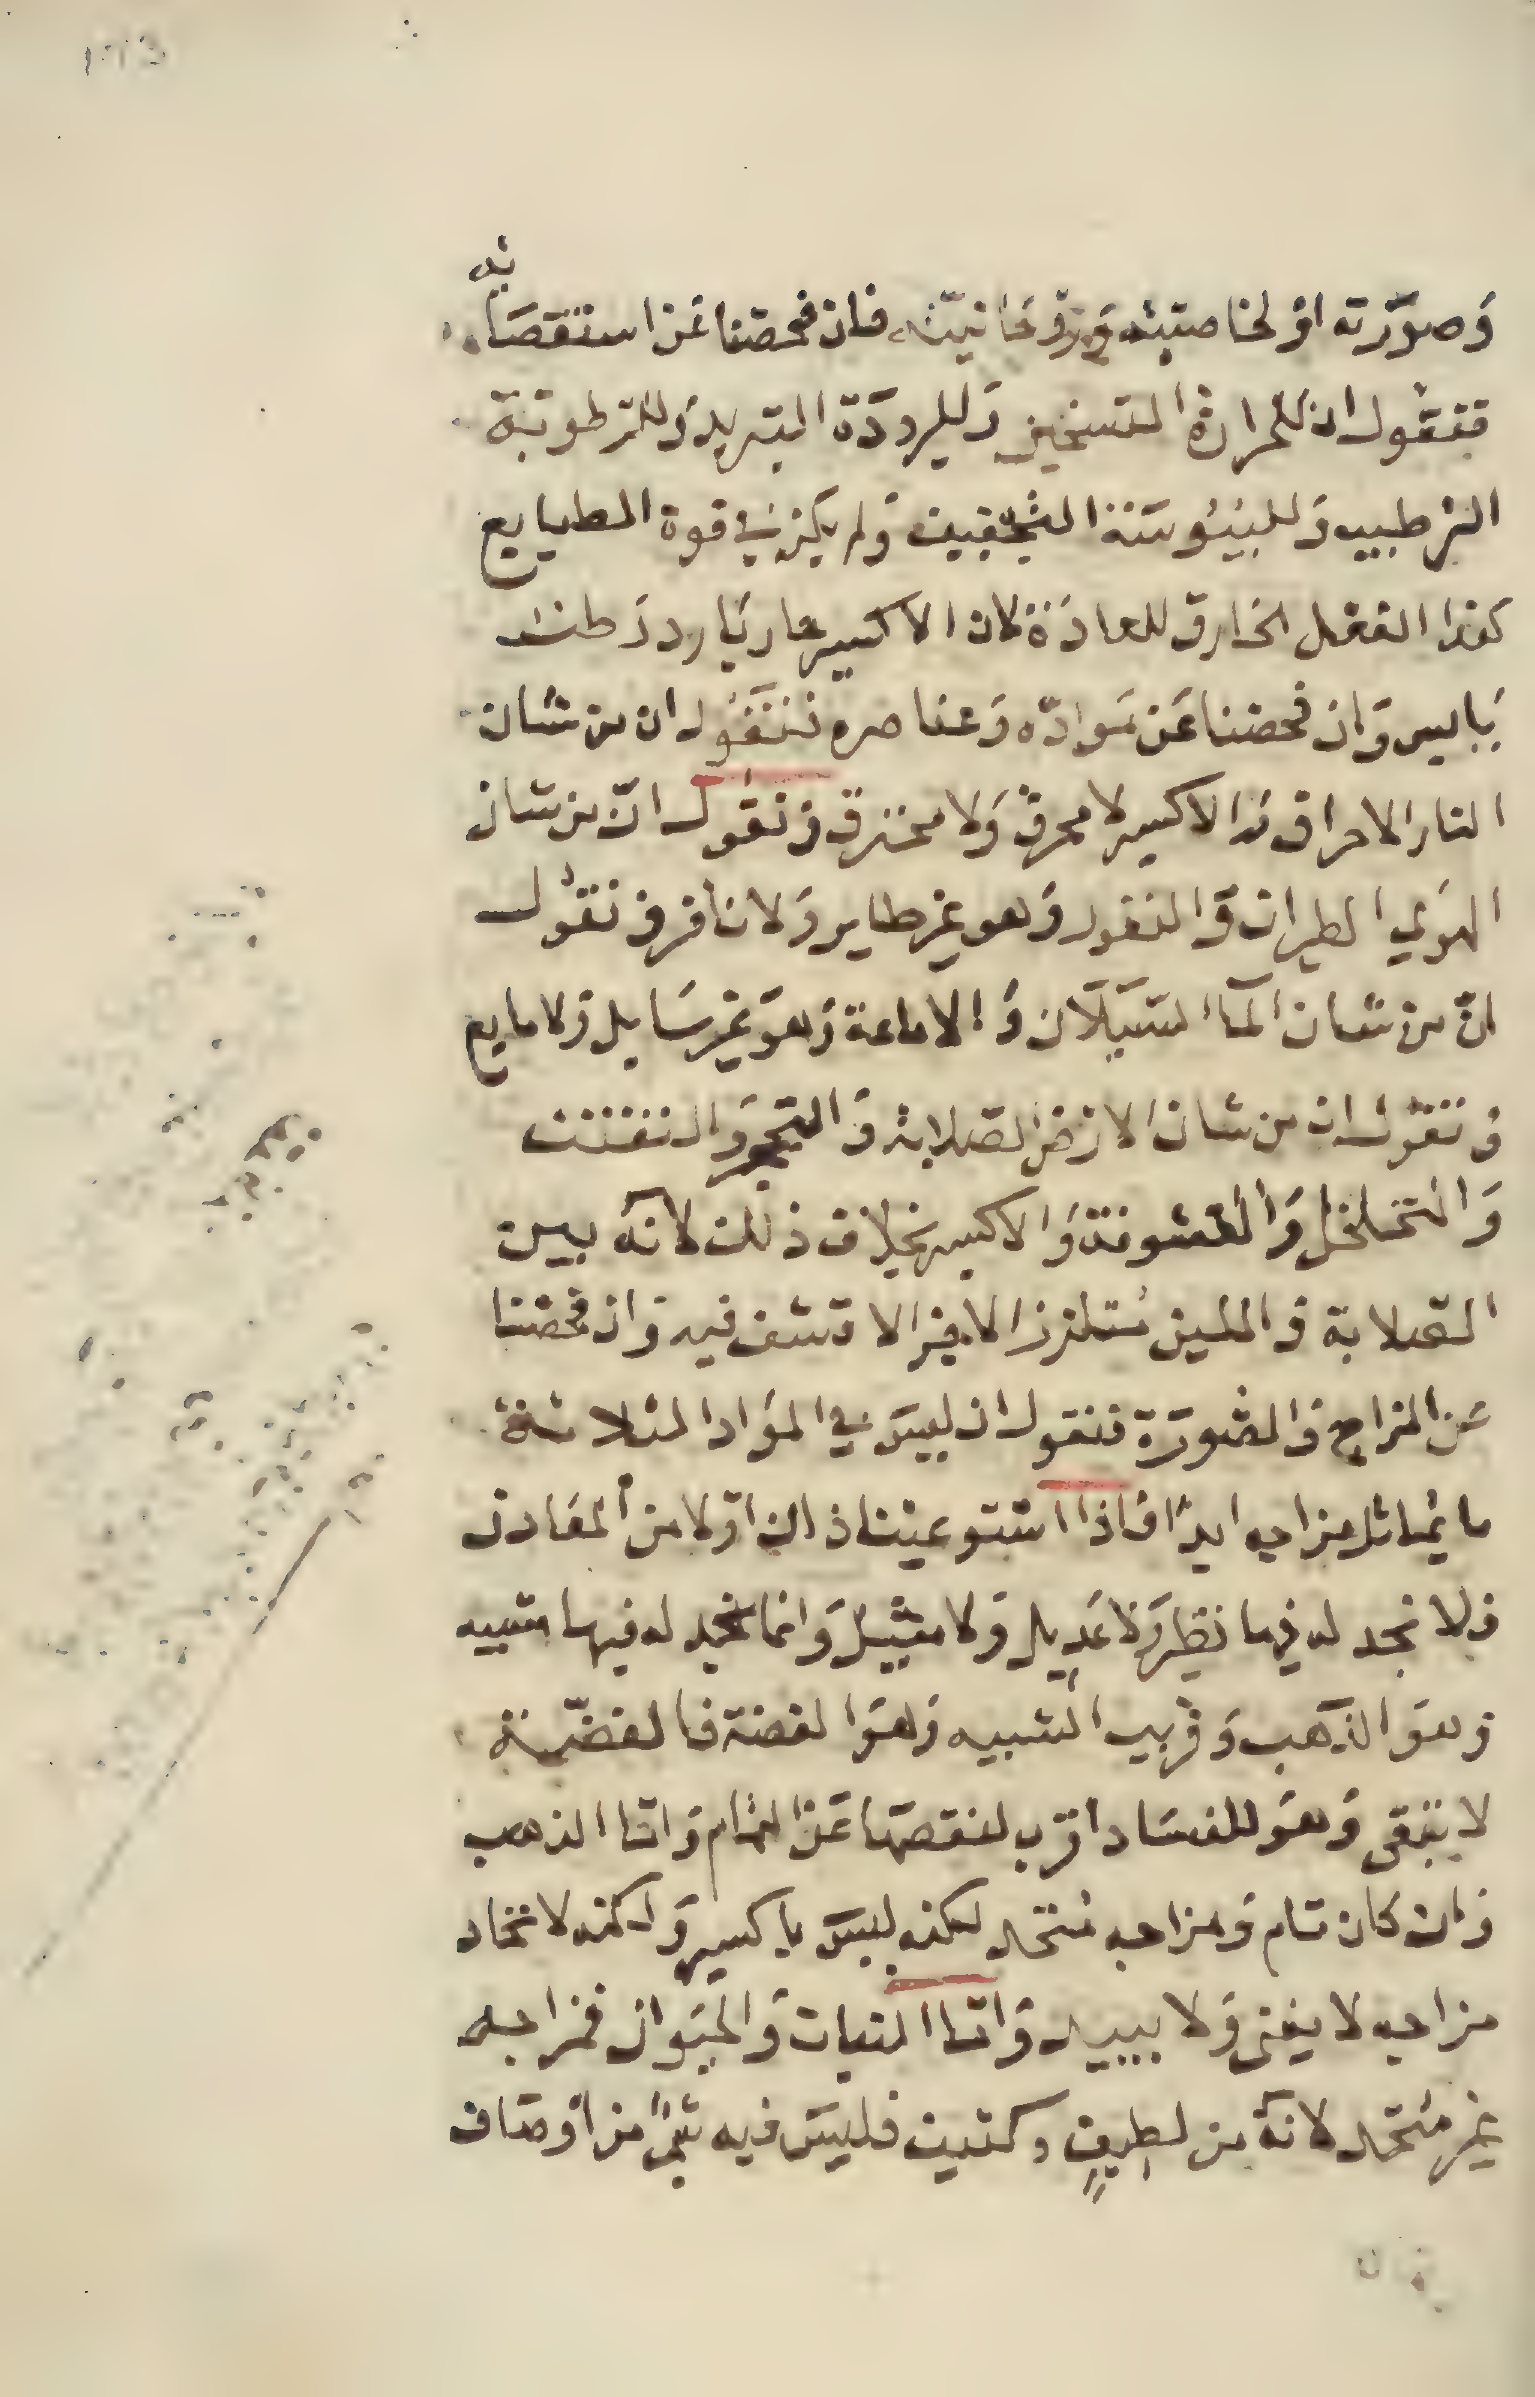 وَصوّرته اوْ لخاصيته وَروَحَانيته فان فحصنا عَن استقصَاته
فنقول ان للحرارة التسخين وَللبرودَة التبريد وَللرطوبَة
الترطيب وَلليبُوسَة التجفيف وَلم يكن في قوة الطبايع
كهذا الفعل الخارق للعادَة لان الاكسير حار بَارد رَطب
يَابس وَان فحصنا عَن مَوادّه وَعناصره فنقول ان من شان
النار الاحراق وَالاكسير لا محرق وَلا محترق وَنقول انّ من شان
الهوَي الطيران وَالنفور وَهو غير طاير وَلا نافر وَنقول
انّ من شان المآ السَيلَان وَالاماعة وَهوَ غير سَايل وَلا مايع
وَنقول ان من شان الارض الصلابة وَالتحجر وَالتفتت
وَالتخلخل وَالقشوفة وَالاكسير بخلاف ذلك لانه بين
الصلابة وَاللين مُتلزز الاجزا لا قشف فيه وَان فحصنا
عَن المزاج وَالصُورَة فنقول ان ليسَ في الموَاد الثلاثة
ما يُماثل مزاجه ابدًا فاذا استوعبنا ذلك اوّلا من المعَادن
فلا نجد له فيها نظير وَلا عَديل وَلا مثيل وَانما نجد له فيها شبيه
وَهوَ الذهَب وَقريب الشبيه وَهوَ الفضة فالفضّة
لا تبقى وَهوَ للفسَاد اقرب لنقصهَا عَن التمام وَامّا الذهب
وَان كان تام وَمزاجه مُتحد لكنه ليسَ باكسير وَلكنه لاتحاد
مزاجه لا يفنى وَلا يبيد وَامّا النبات وَالحيَوان فمزاجه
غير متّحد لانّه من لطيفٍ وكثيف فليسَ فيه شئً من أوصَاف